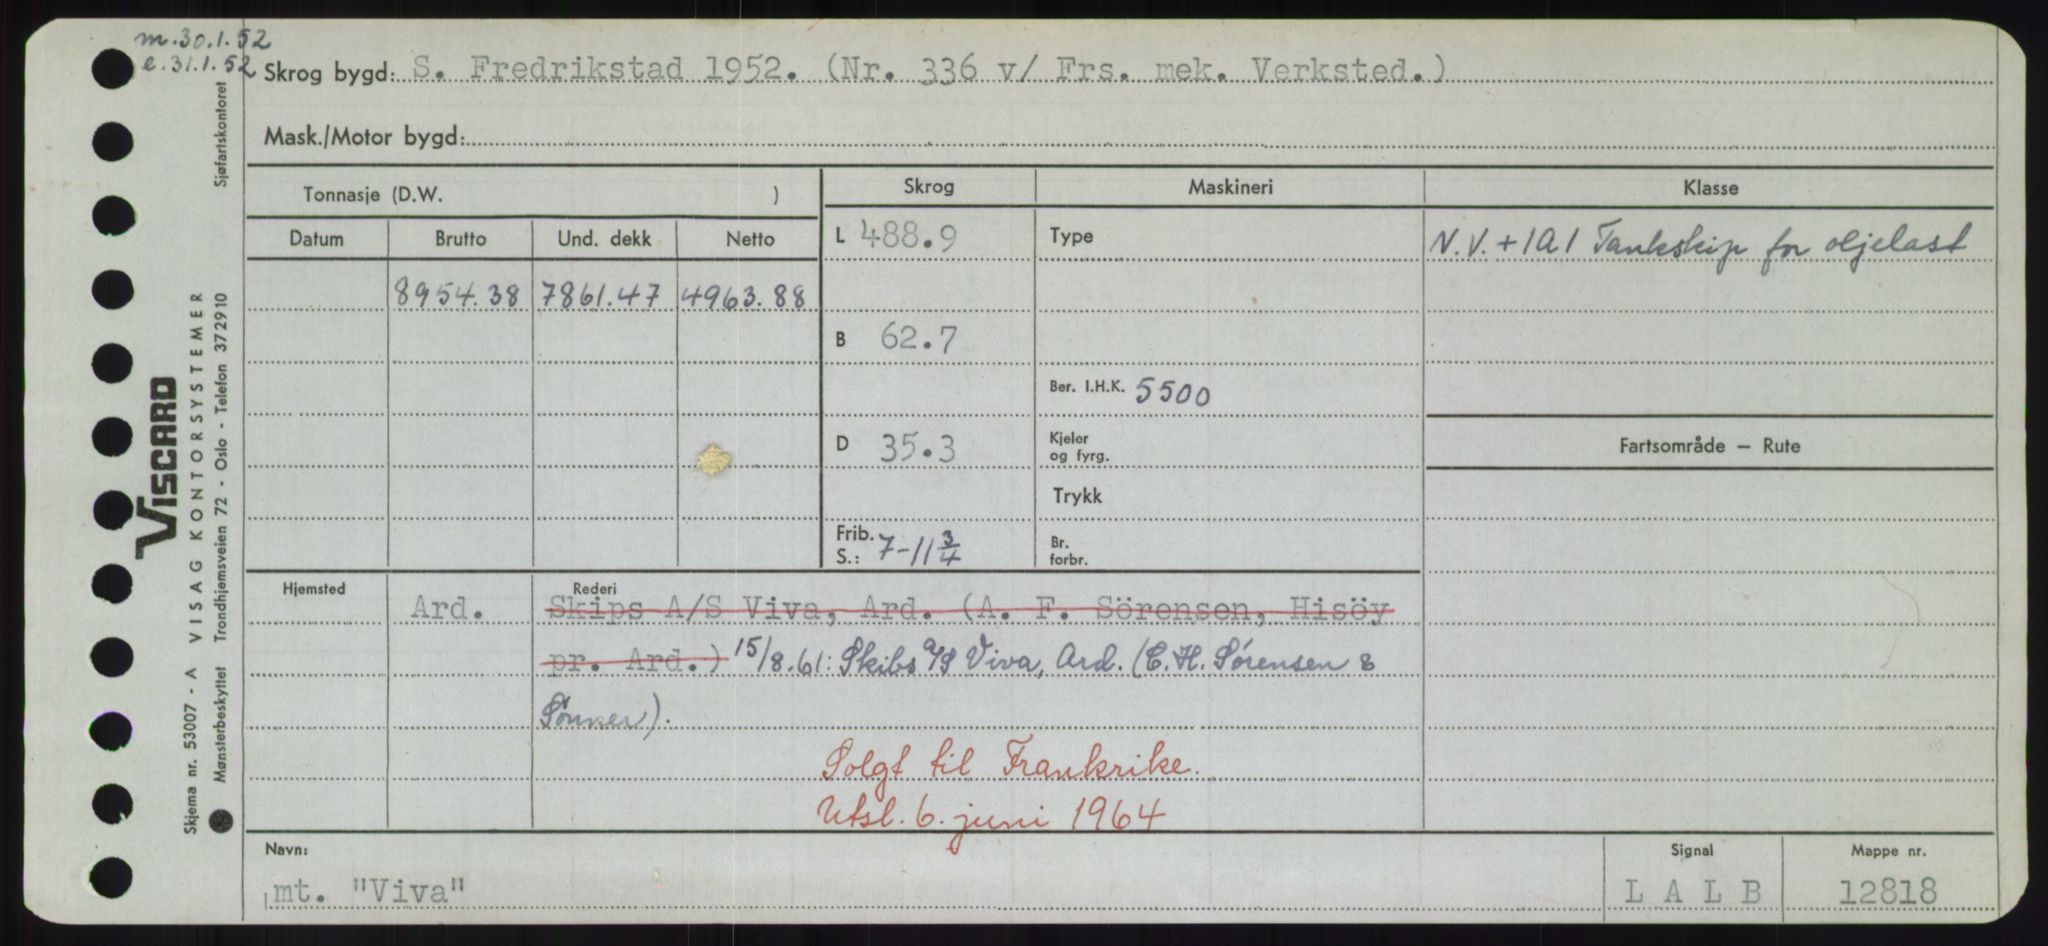 m. 30.1.52
e. 31.1.52
Skrog bygd: S. Fredrikstad 1952. (Nr. 336 v/ Frs. mek. Verksted.)
Mask./Motor bygd:
Tonnasje (D.W. )
Skrog
Maskineri
Klasse
Datum Brutto Und. dekk Netto
L 488.9
Type
N.V. + 1A1 Tankskip for oljelast
8954.38 7861.47 4963.88
B 62.7
Ber. I.H.K. 5500
D 35.3
Kjeler
og fyrg.
Fartsområde — Rute
Trykk
Frib.
S.: 7-11 3/4
Br.
forbr.
Hjemsted
Rederi
Ard. Skips A/S Viva, Ard. (A. F. Sörensen, Hisöy
pr. Ard.) 15/8.61: Skibs A/S Viva, Ard. (C. H. Sørensen &
Sønner).
Solgt til Frankrike.
Utsl. 6. juni 1964
Navn:
mt. "Viva"
Signal
L A L B
Mappe nr.
12818
VISCARD
Skjema nr. 53007 - A VISAG KONTORSYSTEMER
Mønsterbeskyttet Trondhjemsveien 72 - Oslo - Telefon 372910 Sjøfartskontoret